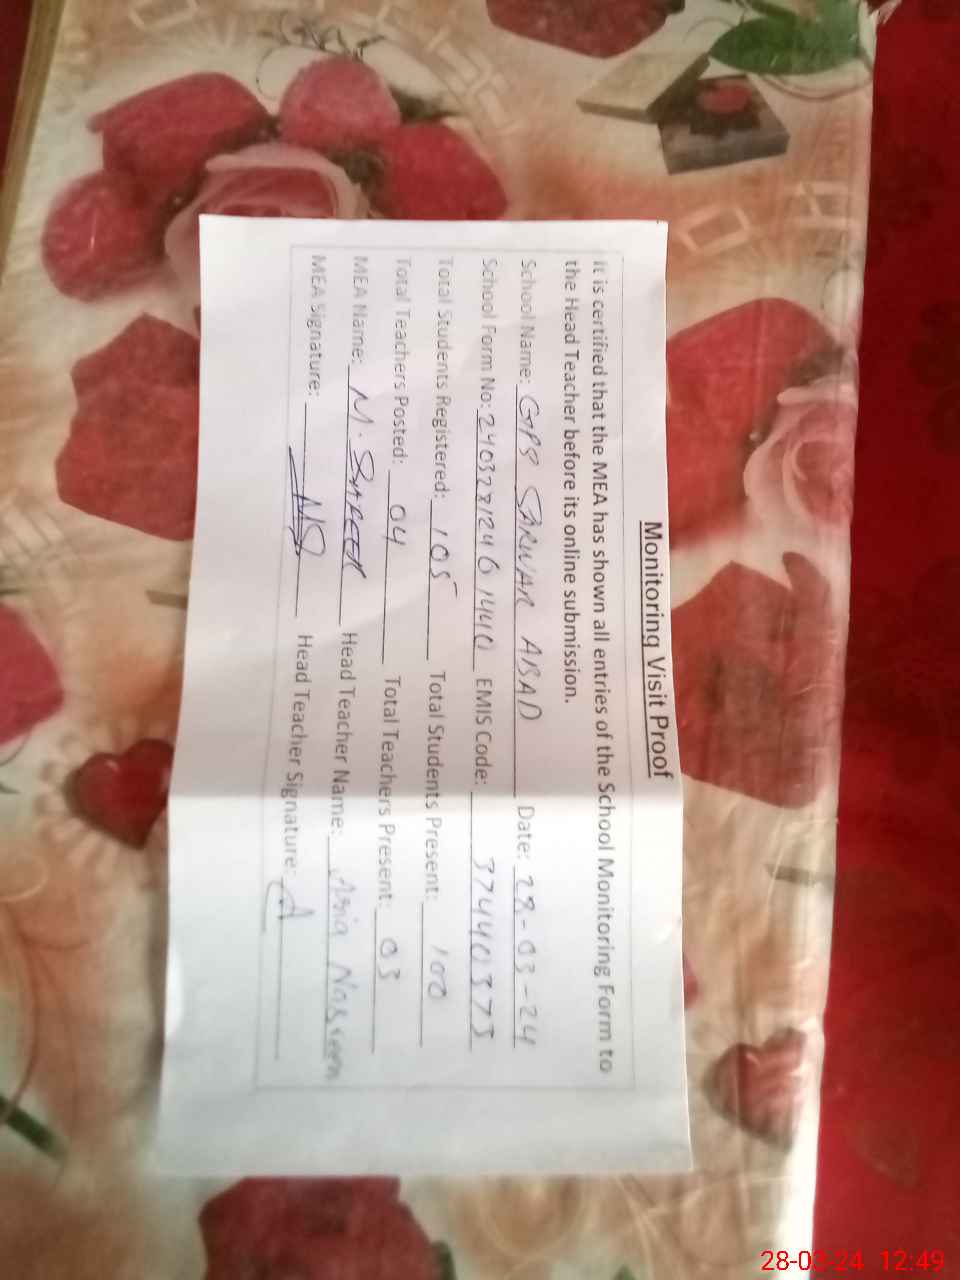 Monitoring Visit Proof
It is certified that the MEA has shown all entries of the School Monitoring Form to
the Head Teacher before its online submission.
School Name: GPS SARWAR ABAD Date: 28-03-24
School Form No: 2403281246 1440 EMIS Code: 37440375
Total Students Registered: 105 Total Students Present: 100
Total Teachers Posted: 04 Total Teachers Present: 03
MEA Name: M. Head Teacher Name: Asia Nasreen
MEA Signature: Head Teacher Signature:
28-03-24 12:49